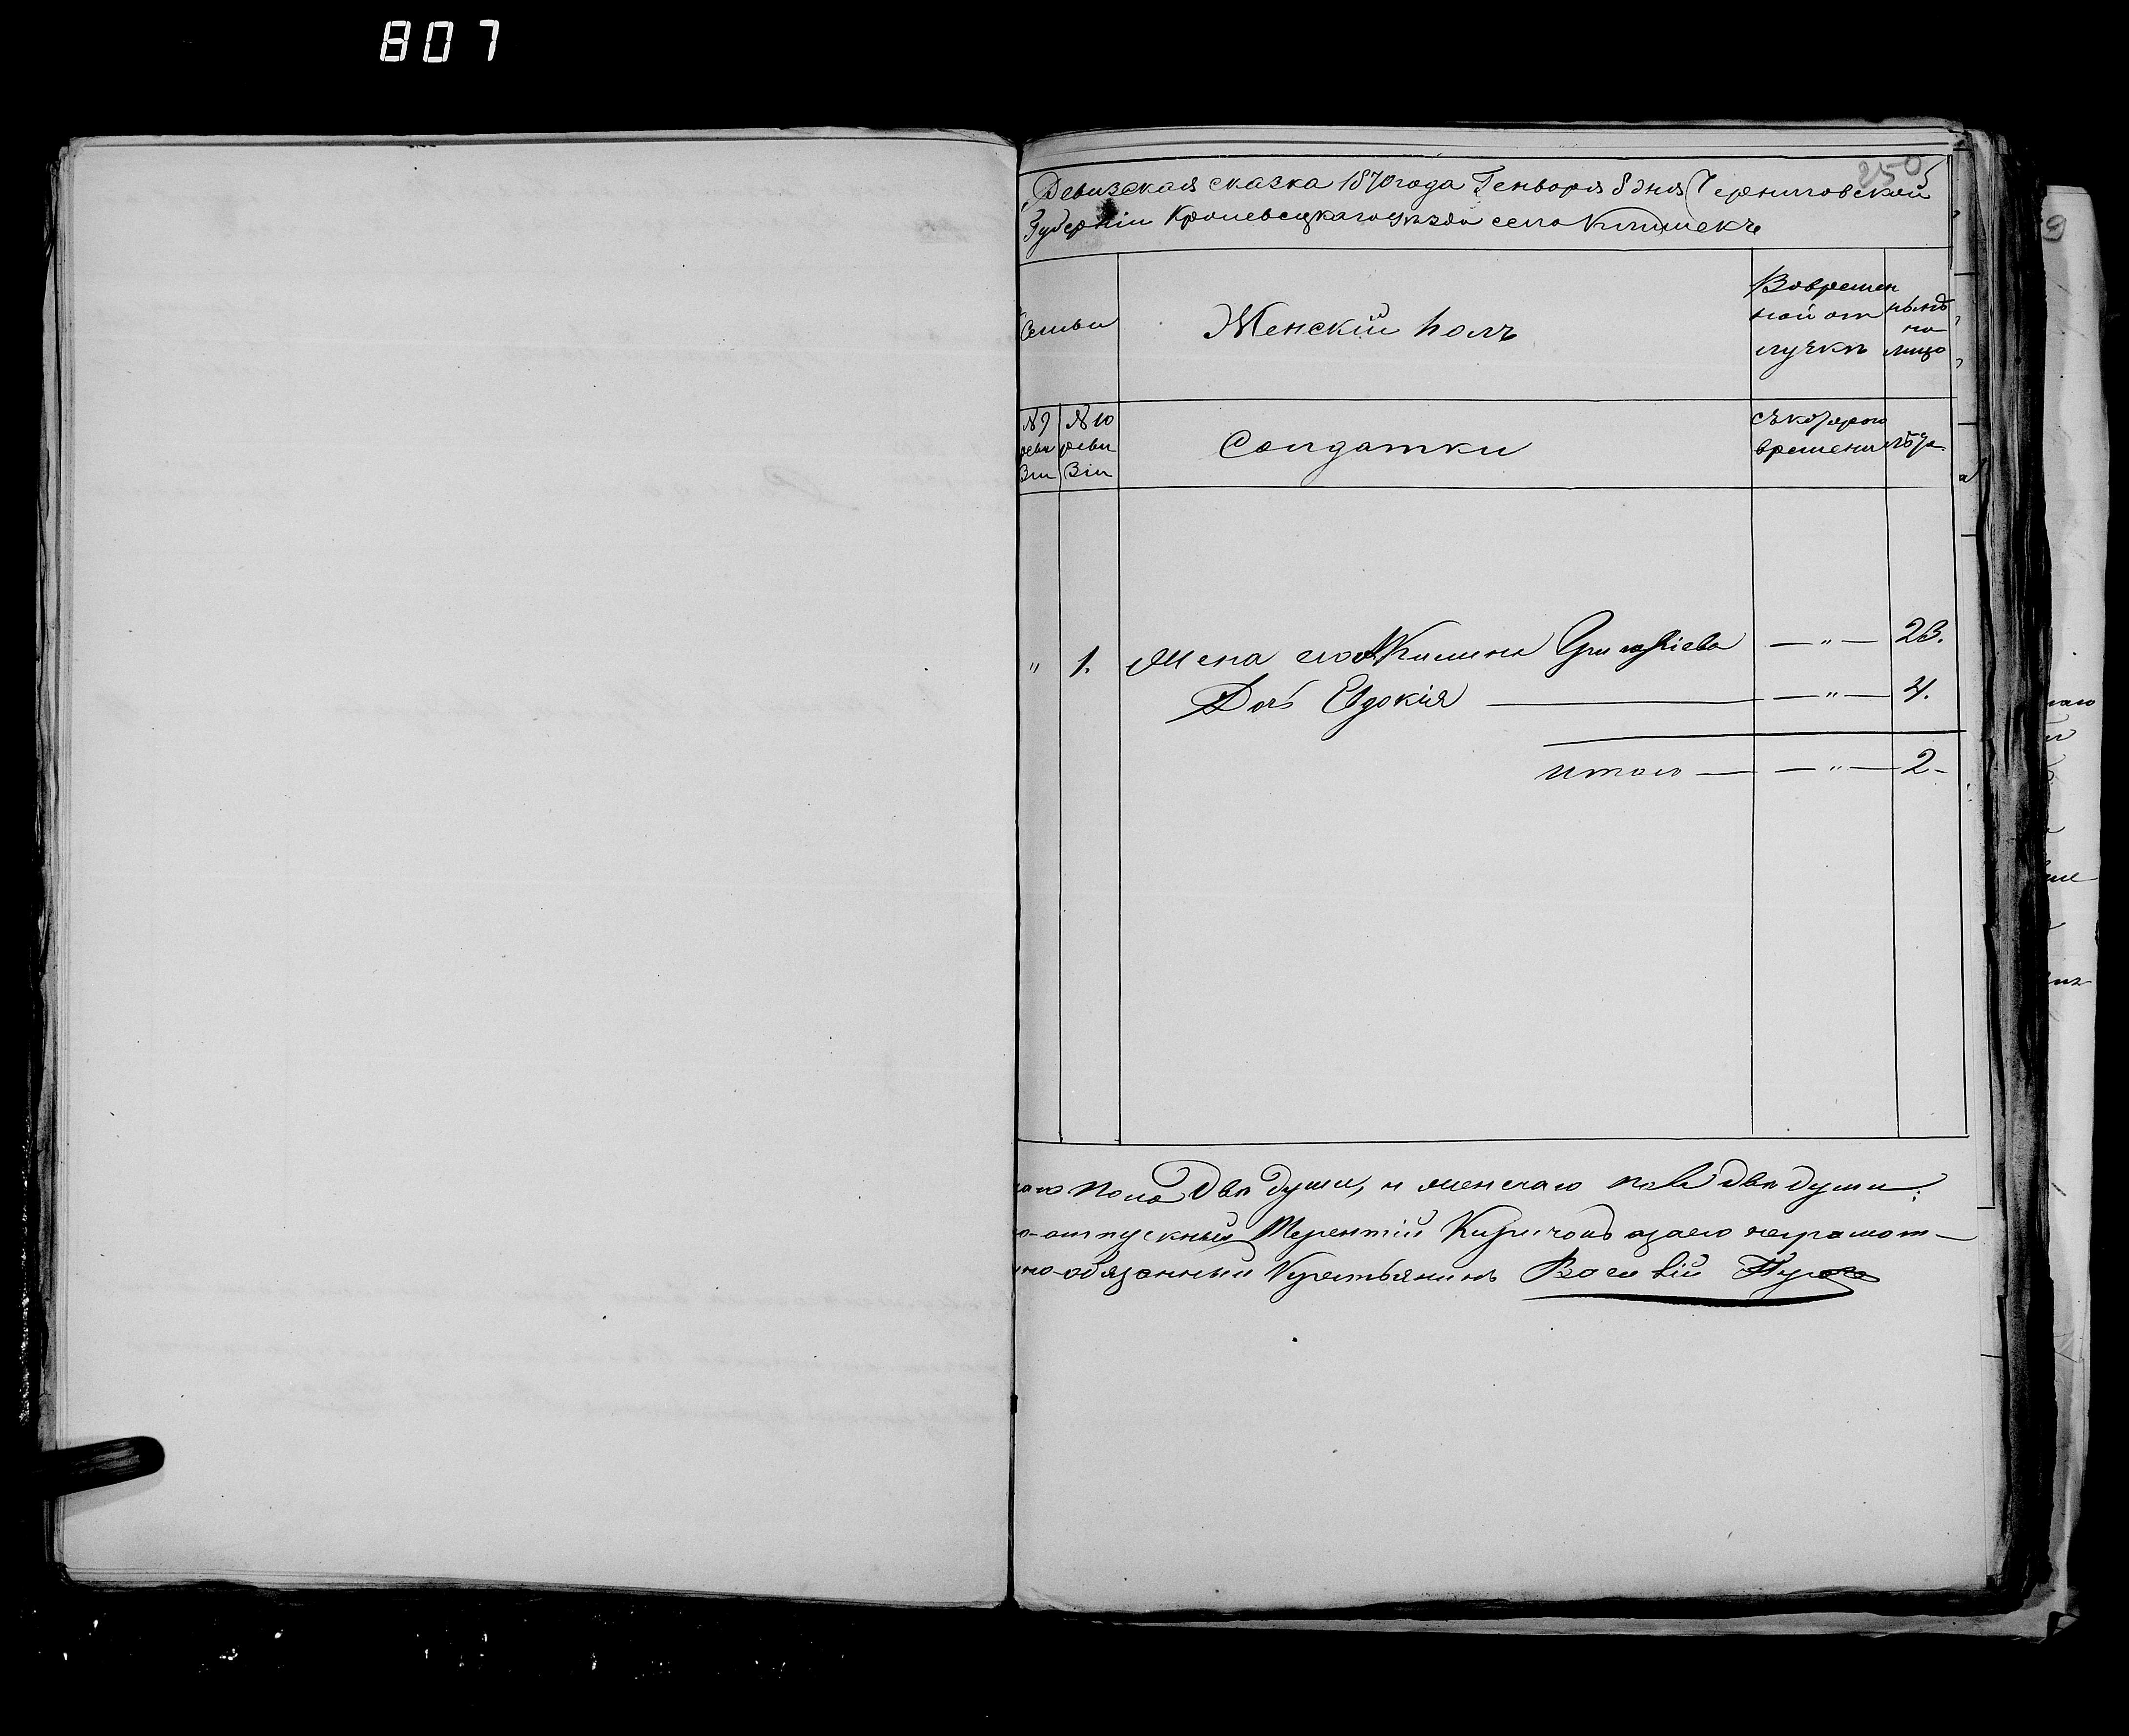 807
250
Ревизская сказка 1870 года Генваря 8 дня Черниговской
Губерніи Кролевецкаго уезда села
Семьи
Женскій полъ
Вовремен
ной от
лучкѣ
нынѣ
на
лицо
№ 9
реви
зіи
№ 10
реви
зіи
Солдатки
Съ котораго
времени
лѣта
" 1. Жена его Акилина — " — 23.
Дочь Евдокія — " — 4.
итого — " — 2
пола двѣ души, и женскаго двѣ души
отпускный Терентій а за его неграмот-
но-обязанный Крестьянинъ
9